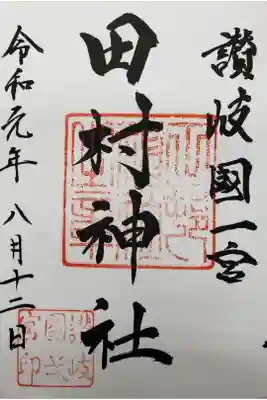 讃岐國一宮
田村神社
令和元年八月十二日